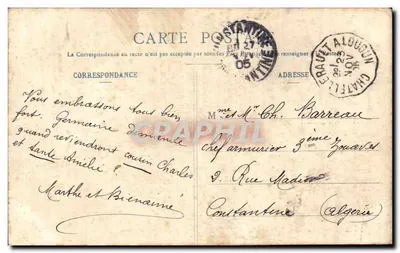 CARTE POSTALE
La Correspondance au recto n'est pas acceptée par
CORRESPONDANCE
ADRESSE
CONSTANTINE
27
05
CHATELLERAULT A LOUDUN
23
NOV
Vous embrassons tous bien
fort. Germaine demande
quand reviendront cousin Charles
et tante Amélie ?
Marthe et Bienaimé
Mme et Mr Ch. Barreau
chef armurier 3ème Zouaves
2. Rue
Constantine (Algérie)